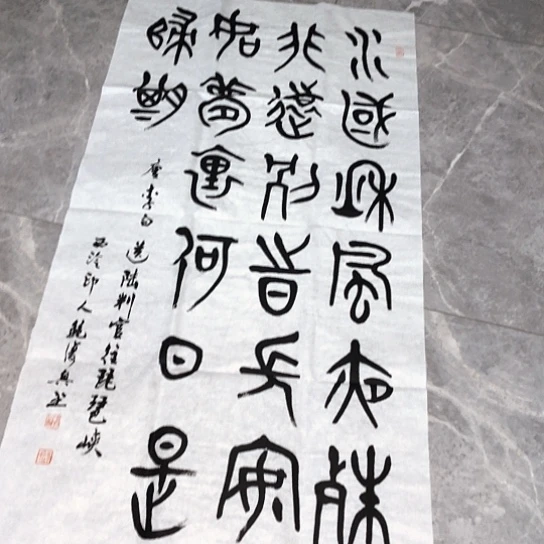 水國秋風夜殊
非遠別時長安
如夢裏何日是
歸期
唐李白送陸判官往琵琶峽
西泠印人